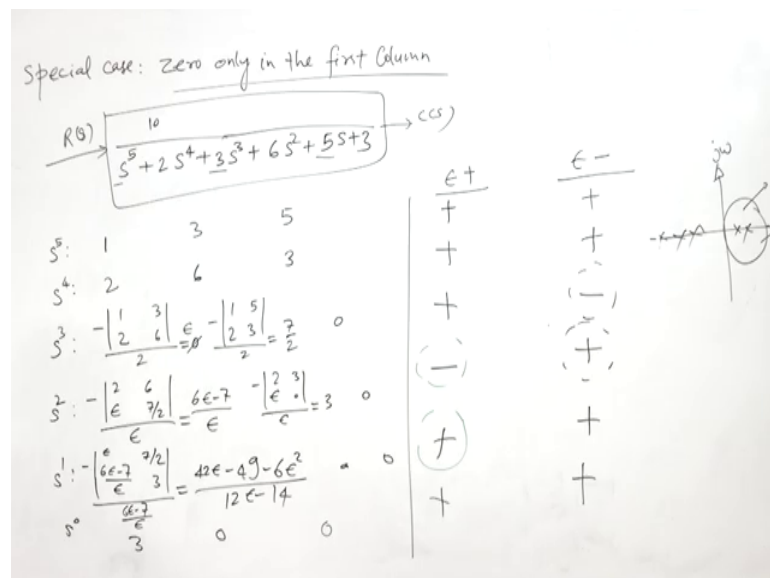 Special case: Zero only in the first Column
R(s) 10 C(s)
s⁵+2s⁴+3s³+6s²+5s+3
ϵ+ ϵ- jω
s⁵: 1 3 5 + +
s⁴: 2 6 3 + +
s³: -|1 3; 2 6|/2 = 0 ϵ -|1 5; 2 3|/2 = 7/2 0 + -
s²: -|2 6; ϵ 7/2|/ϵ = (6ϵ-7)/ϵ -|2 3; ϵ 0|/ϵ = 3 0 - +
s¹: -|ϵ 7/2; (6ϵ-7)/ϵ 3|/((6ϵ-7)/ϵ) = (42ϵ-49-6ϵ²)/(12ϵ-14) 0 0 + +
s⁰ 3 0 0 + +